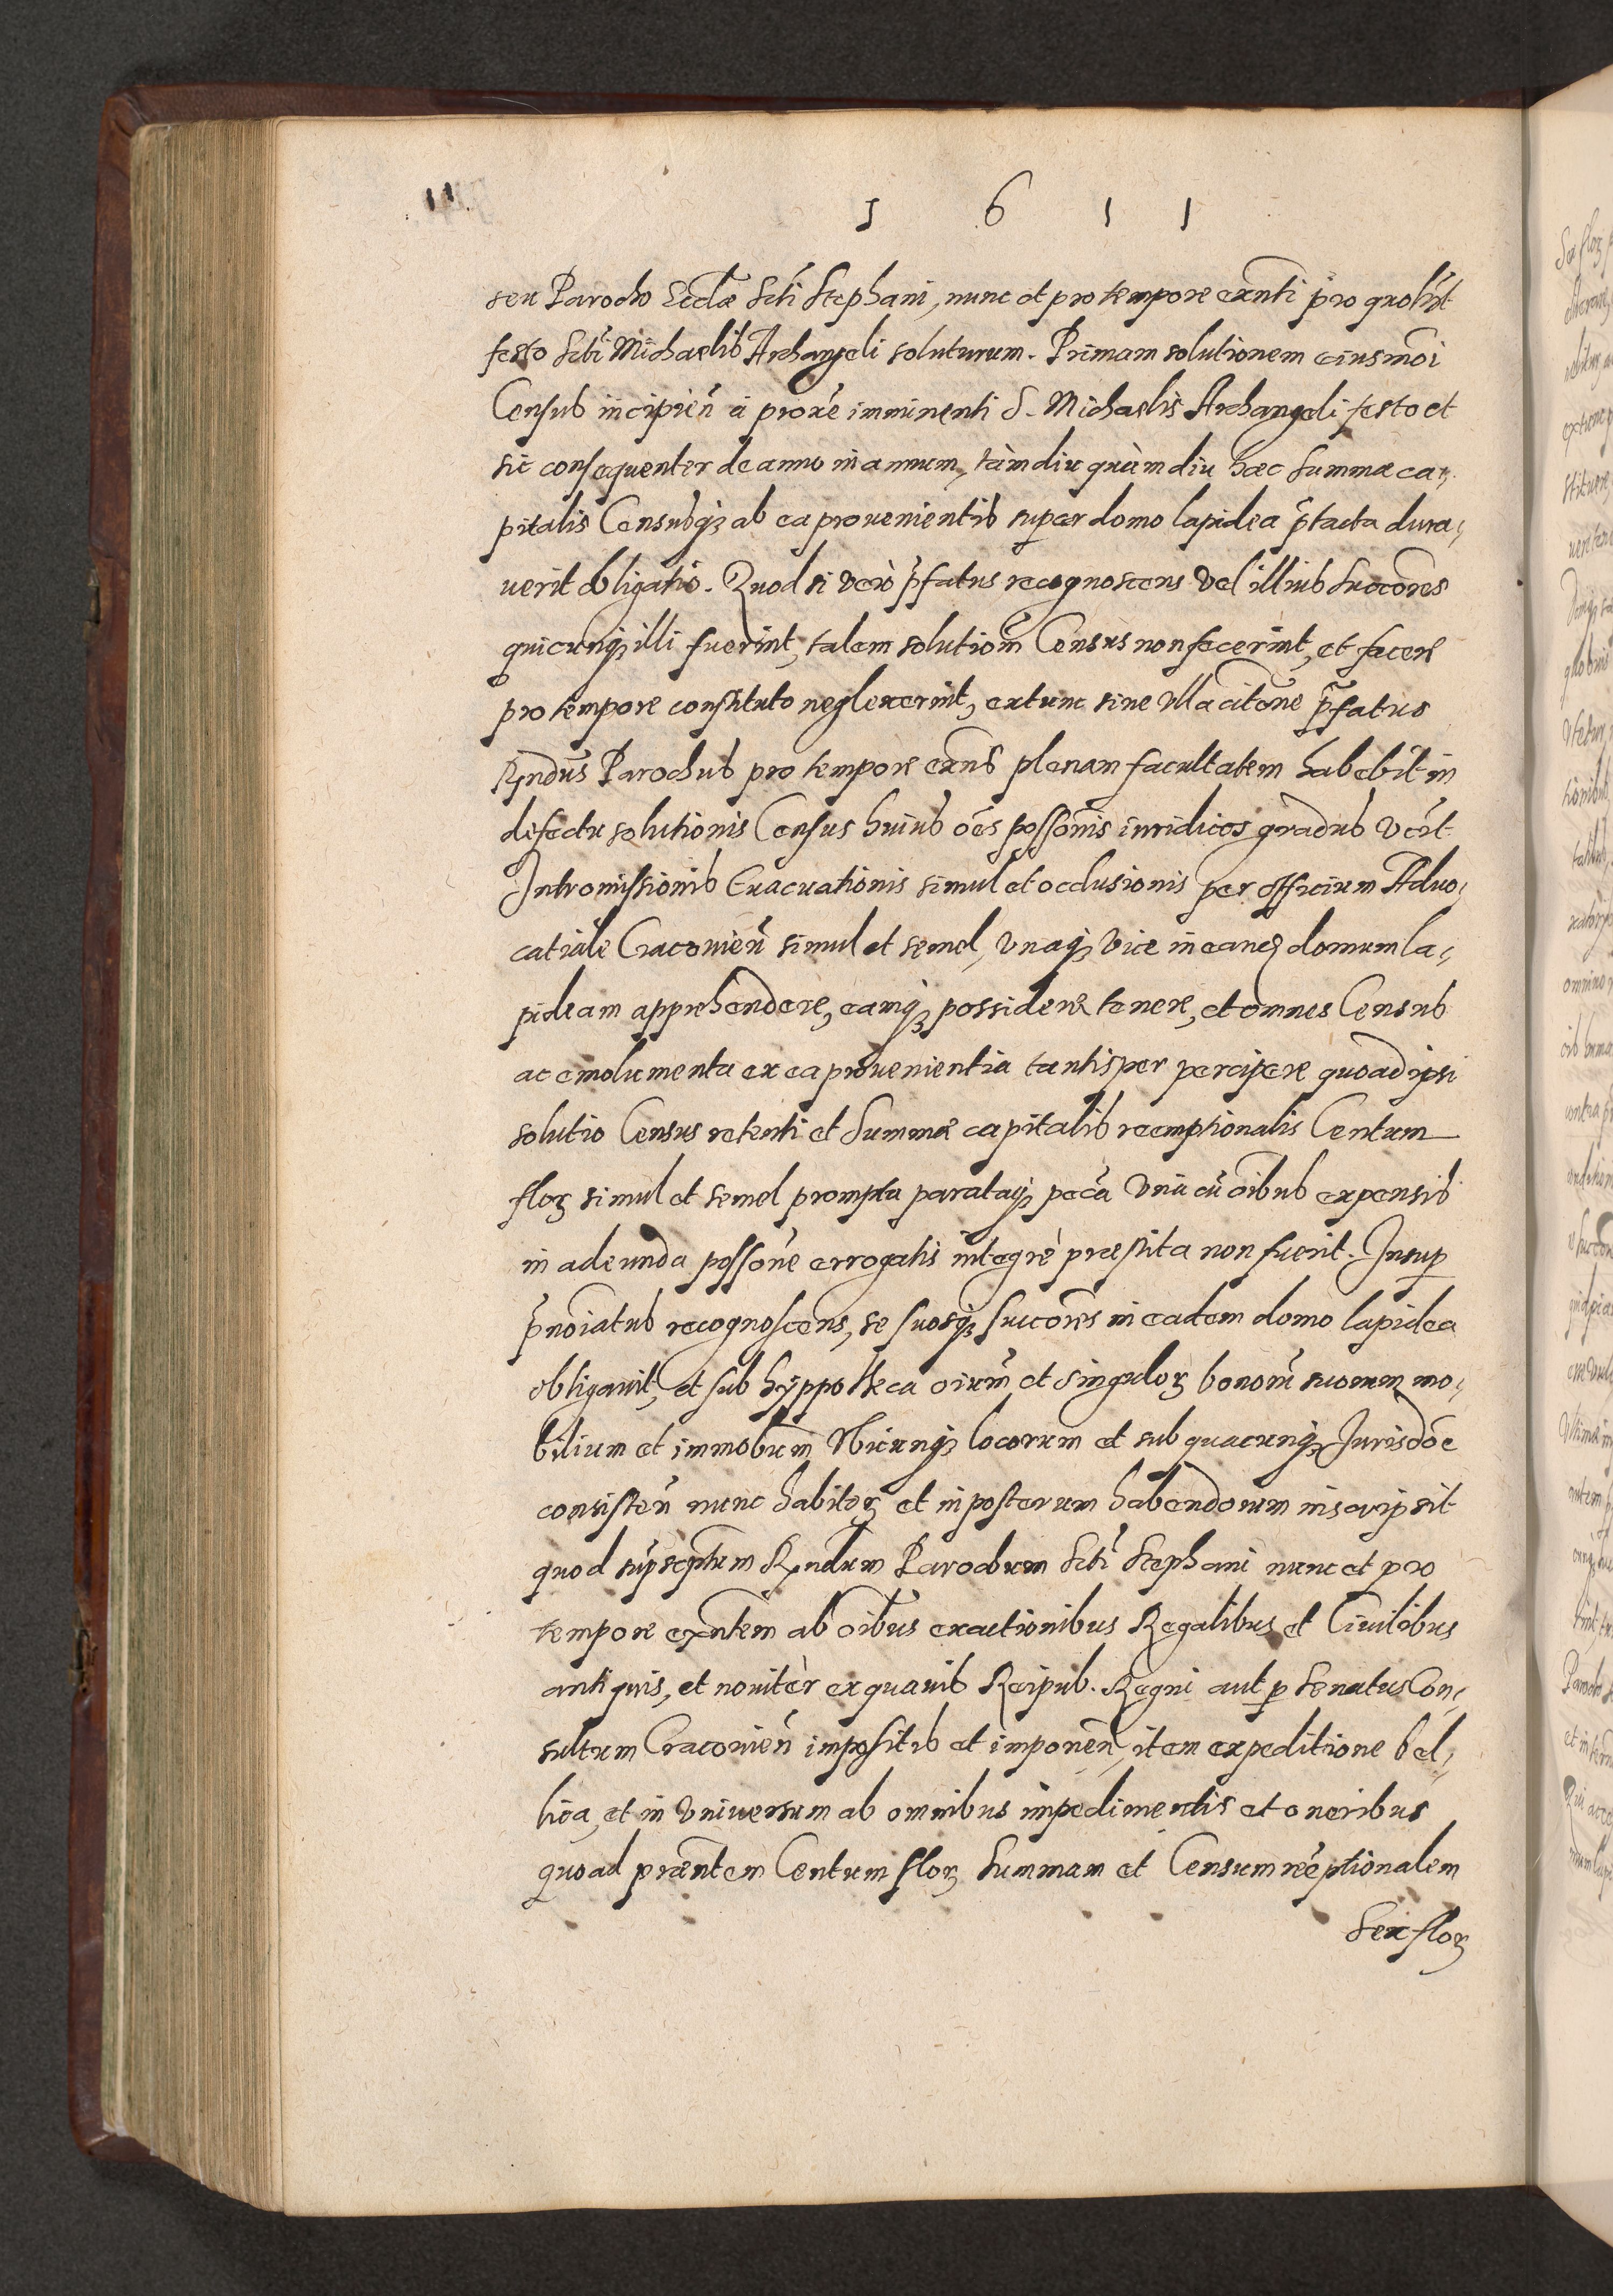 1 6 1 1
seu Parocho Ecclae Scti Stephani, nunc et pro tempore exnti pro quolibt
festo Scti Michaelis Archangeli soluturum. Primam solutionem eiusmoi
Census incipien̄ à proxe imminenti S. Michaelis Archangeli festo et
sic consequenter de anno in annum, tàmdiu quàmdiu haec Summa ca-
pitalis Censusqꝫ ab ea prouenientis super domo lapidea p̄tacta dura-
uerit obligatio. Quod si verò p̄fatus recognoscens vel illius Succores
quicunqꝫ illi fuerint, talem solutiom̄ Census non fecerint, et facere
pro tempore constituto neglexerint, extunc sine vlla citone p̄fatus
Rndus Parochus pro tempore exns plenam facultatem habebit in
defectu solutionis Census huius oēs possonis iuridicos gradus vct
Intromissionis Euacuationis simul et occlusionis per officium Aduo-
catiale Cracouien̄ simul et semel, vnaqꝫ vice in eand domum la-
pideam apprehendere, eamqꝫ possidere tenere, et omnes Census
ac emolumenta ex ea prouenientia tantisper percipere quoad ipsi
solutio Census retenti et Summae capitalis reemptionalis Centum
floꝝ simul et semel prompta parataqꝫ pecā vnà cū oībus expensis
in adeunda possone errogatis integrè praestita non fuerit. Insup
p̄noiatus recognoscens, se suosqꝫ succores in eadem domo lapidea
obligauit, et sub hyppotheca oium̄ et singuloꝝ bonom̄ suorum mo-
bilium et immobium̄ Vbicunqꝫ locorum et sub quacunqꝫ Jurisdoē
consisten̄ nunc habitoꝝ et in posterum habendorum inscripsit
quod supscptum Rndum Parochum Scti Stephani nunc et pro
tempore exntem ab oībus exactionibus Regalibus et Ciuilibus
antiquis, et nouitèr ex quauis Reipub. Regni aut p Senatus Con-
sultum Cracouien̄ impositis et imponen̄, item expeditione bel-
lica, et in vniuersum ab omnibus impedimentis et oneribus
quoad praentem Centum floꝝ Summam et Censum reēptionalem
Sex floꝝ